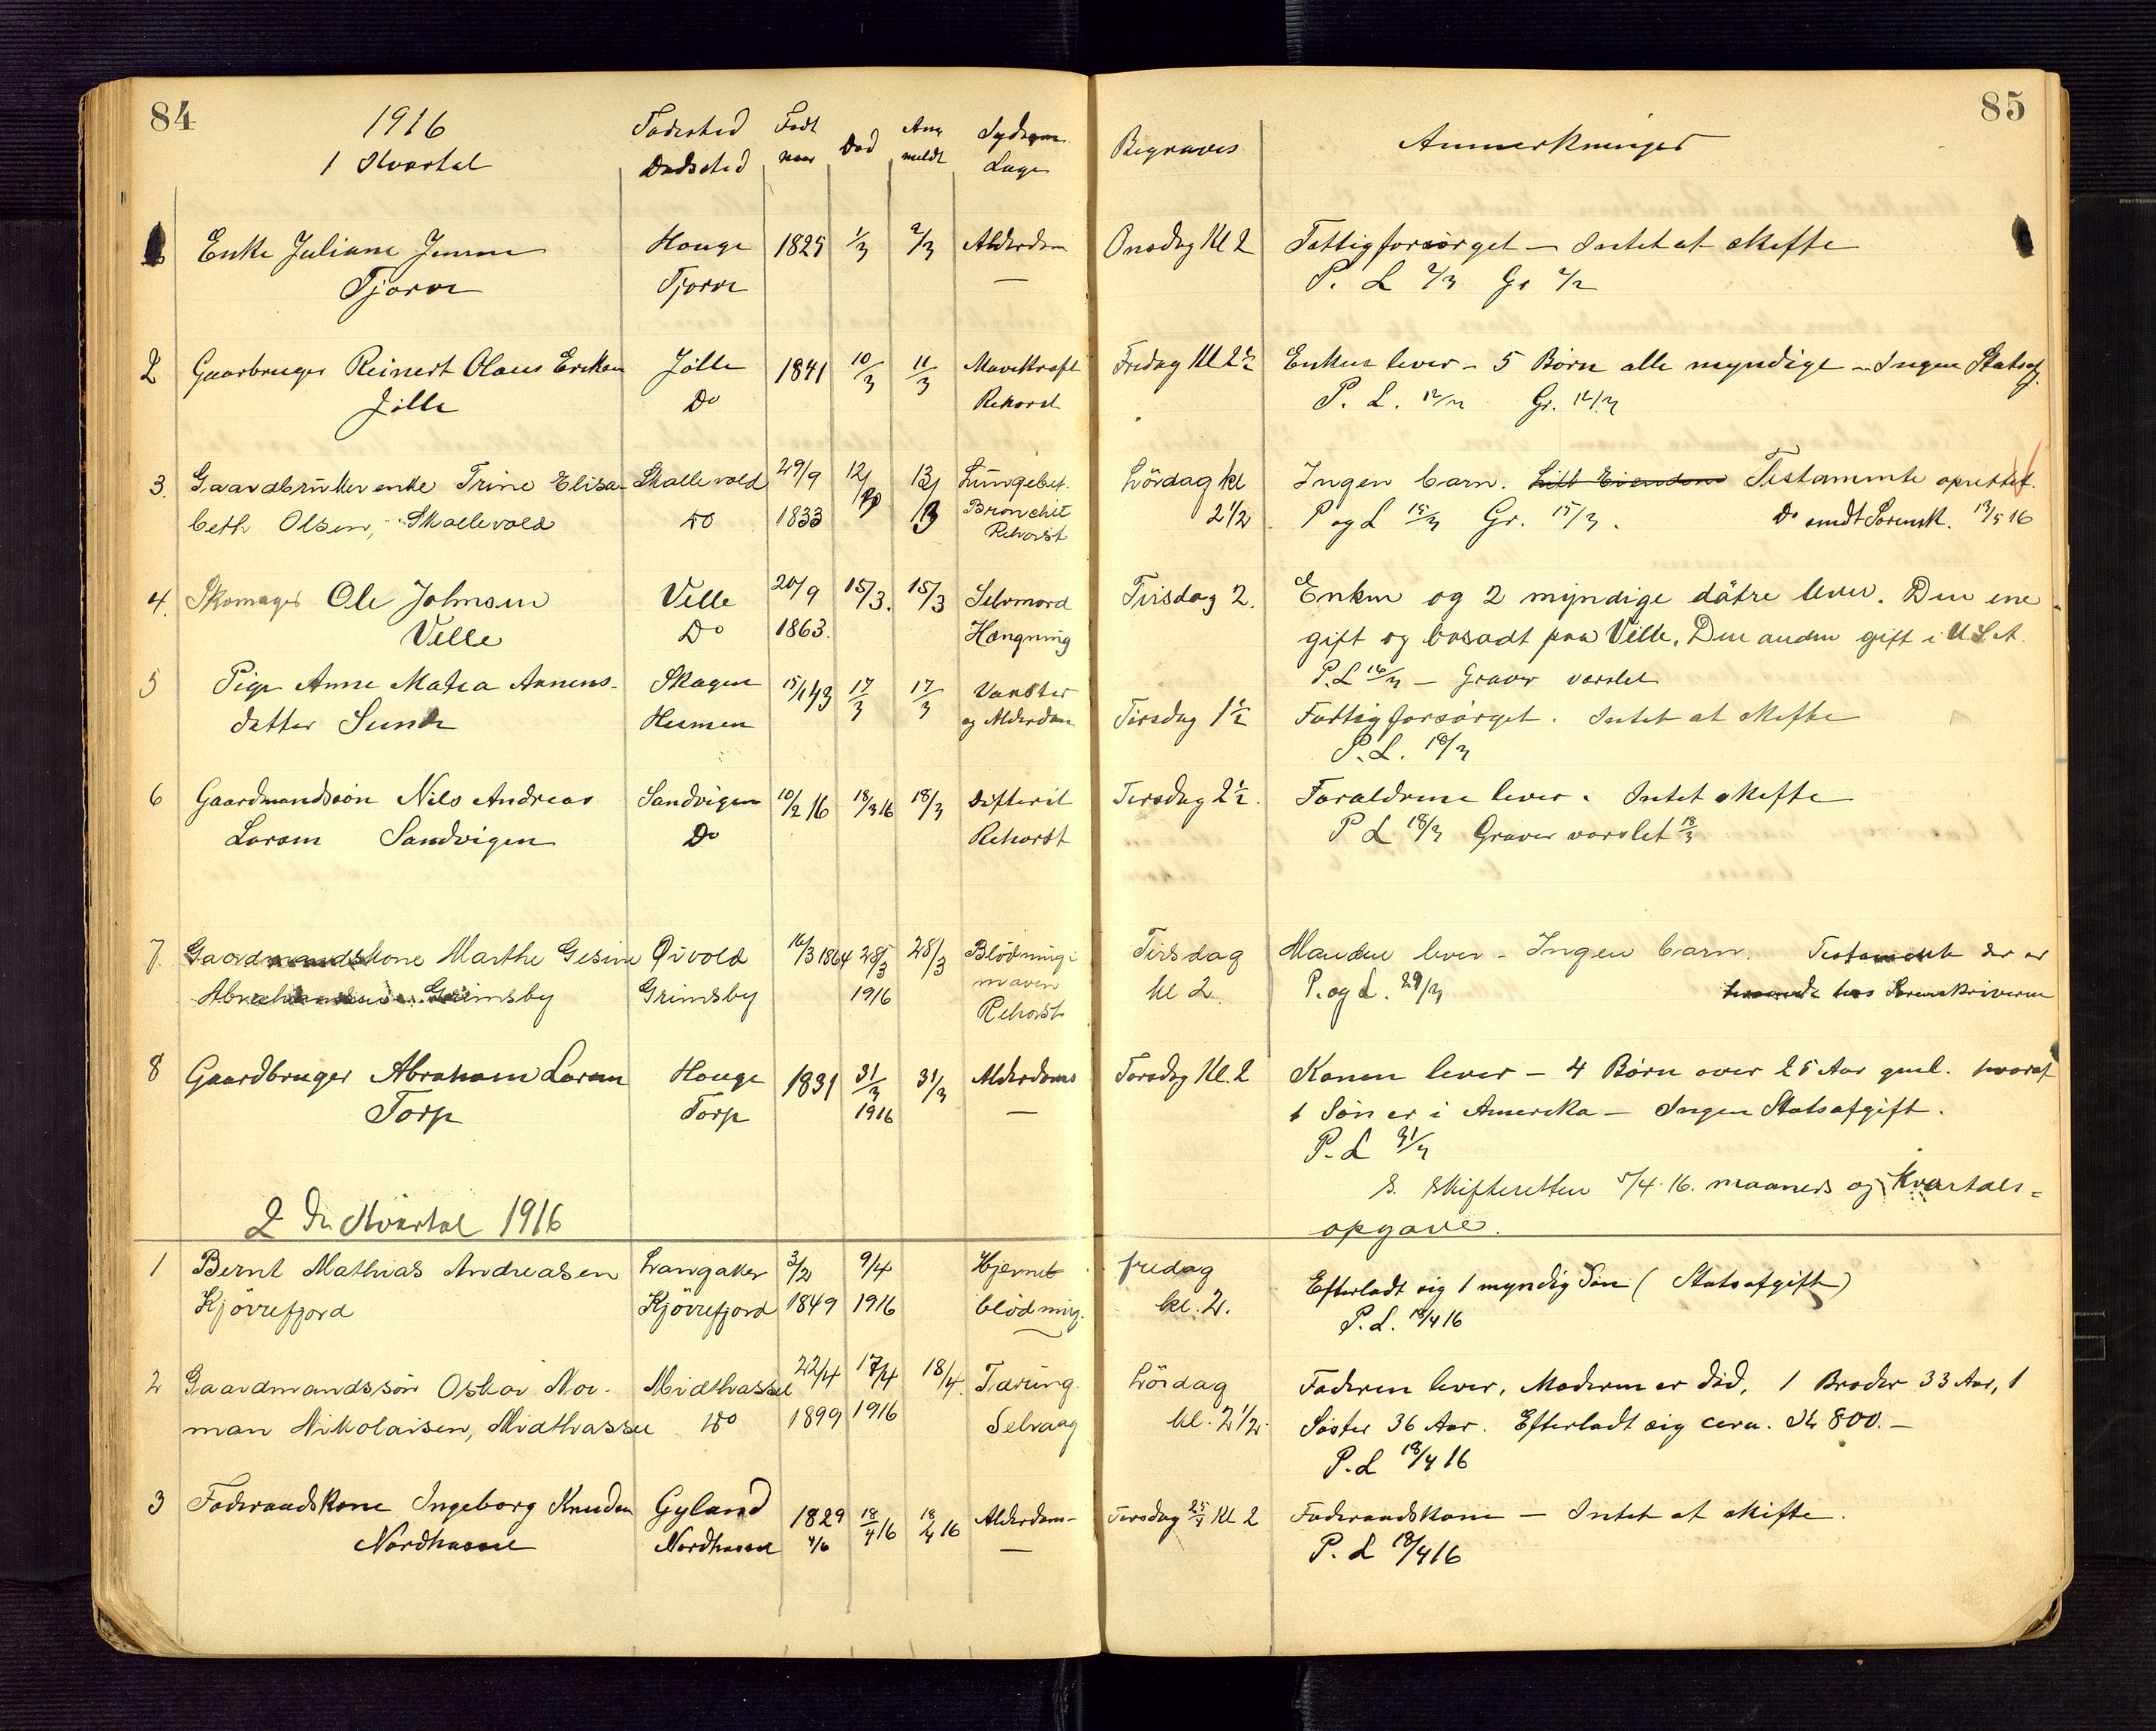 84
1916
1 Kvartal
Fødested
Dødsted
Født
naar
Død
Anm
meldt
Sygdom
Læge
Enke Juliane Jensen
Tjørve
Houge
Tjørve
1825
1/3
2/3
Alderdom
—
2
Gaarbruger Reinert Olaus Eriksen
Jølle
Jølle
Do
1841
10/3
11/3
Mavekræft
Rehorst
3.
Gaardbrukerenke Trine Elisa-
beth Olsen, Skollevold
Skollevold
Do
29/9
1833
12/3
13/3
Lungebet.
Bronchit
Rehorst
4.
Skomager Ole Johnsen
Velle
Velle
Do
20/9
1863.
15/3.
15/3
Selvmord
Hængning
5
Pige Anne Matea Annens-
datter Sunde
Skagen
15/1 43
17/3
17/3
og Alderdom
6
Gaardmandssøn Nils Andreas
Larsen Sandvigen
Sandvigen
Do
10/2 16
18/3 16
18/3
Difterit
Rehorst
7.
Gaardmandskone Marthe Gesine
Grimsby
Øivold
Grimsby
16/3 1864
28/3
1916
28/3
Blödning i
maven
Rehorst
8
Gaardbruger Abraham Larsen
Torp
Houge
Torp
1831
31/3
1916
31/3
Alderdoms
—
2 de Kvartal 1916
1
Bernt Mathias Andreasen
Kjörrefjord
Langaker
Kjörrefjord
3/2
1849
9/4
1916
Hjerne
blödning.
2
Gaardmandssön Oskar Nor-
man Nikolaisen, Midthassel
Midthassel
Do
22/4
1899
17/4
1916
18/4.
Tæring
Selvaag
3
Føderaadskone Ingeborg Knudsen
Nordhassel
Gyland
Nordhassel
1829
4/6
18/4 16
18/4 16
Alderdom-
—
85
Begraves
Anmerkninger
Onsdag Kl 2
Fattigforsørget — Intet at skifte
P. L 2/3 Gr
Fredag Kl 2½
Enken lever - 5 Børn alle myndige - Ingen Statsaf.
P. L. 12/3 Gr. 12/3
Lördag kl
2 1/2
Ingen barn. Testamente oprettet.
P og L 15/3 Gr. 15/3.
Do sendt Sorensk. 13/5 16
Tirsdag 2.
Enken og 2 myndige døtre lever. Den ene
gift og bosadt paa Velle. Den anden gift i U.S.A.
P.L 16/3 — Graver varslet
Tirsdag 1½
Fattigforsørget. Intet at skifte
P.L. 18/3
Tirsdag 2½.
Foraldrene lever. Intet skifte
P L 18/3 Graver varslet 18/3
Tirsdag
kl 2.
Manden lever - Ingen barn. Testamente der er
hos Sorenskriveren
P. og L. 29/3
Torsdag Kl. 2
Konen lever — 4 Børn over 25 Aar gml. hvoraf
1 Søn er i Amerika — Ingen Statsafgift.
P. L 31/3
S. Skifteretten 5/4 16. maaneds og Kvartals=
opgave.
fredag
kl. 2.
Efterladt sig 1 myndig Søn (Statsafgift)
P. L. 10/4 16
Lördag
kl. 2 1/2.
Faderen lever, Moderen er død, 1 Broder 33 Aar, 1
Søster 36 Aar. Efterladt sig cirka. Kr 800.—
P. L 18/4 16
Tirsdag 25/4 Kl 2
Føderaadskone — Intet at skifte.
P. L 18/4 16